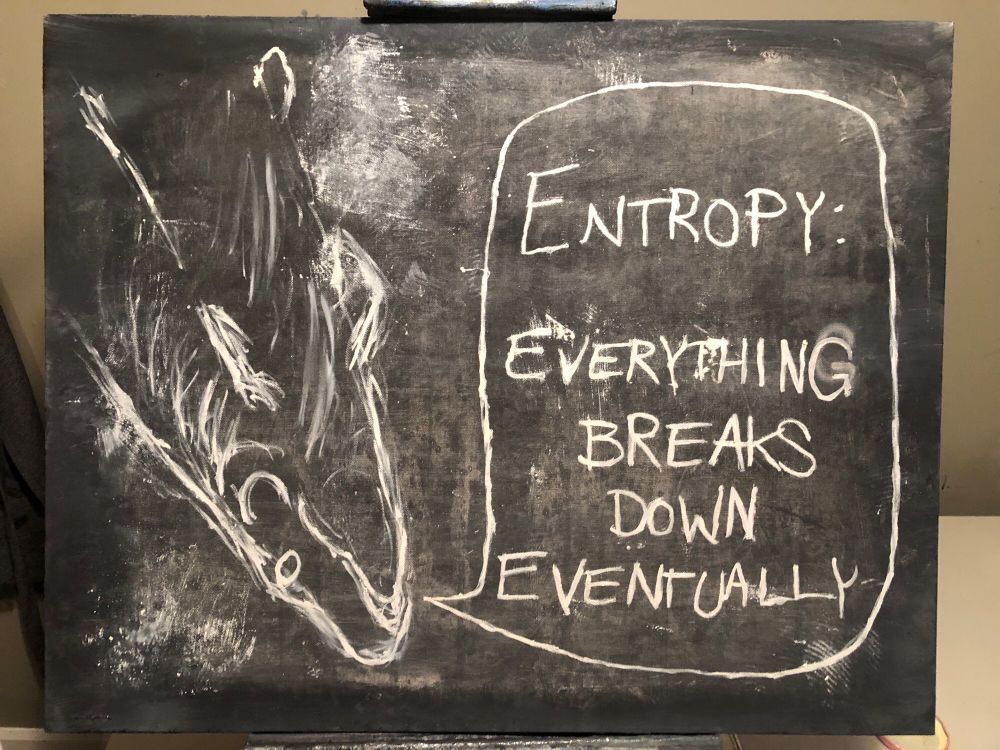 ENTROPY:
EVERYTHING
BREAKS
DOWN
EVENTUALLY